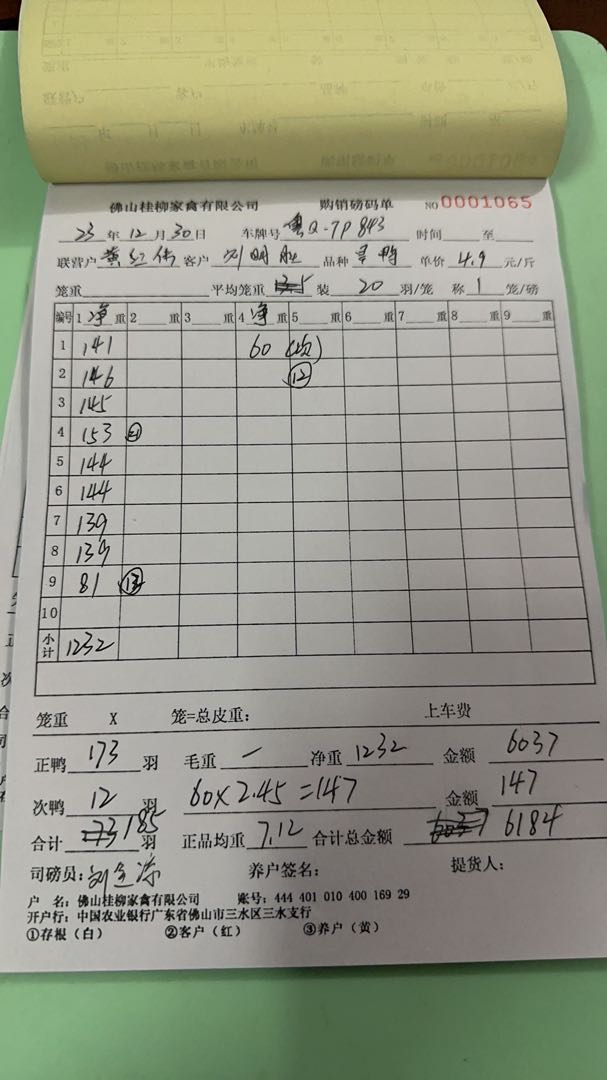 佛山桂柳家禽有限公司 购销磅码单 NO 0001065
23 年 12 月 30 日 车牌号 粤Q-7P843 时间 至
联营户 黄红伟 客户 刘明胜 品种 鸭 单价 4.9 元/斤
笼重 平均笼重 装 20 羽/笼 称 1 笼/磅
编号 1 净 重 2 重 3 重 4 净 重 5 重 6 重 7 重 8 重 9 重
1 141 60 (次)
2 146 12
3 145
4 153
5 144
6 144
7 139
8 139
9 81 13
10
小计 1232
笼重 X 笼=总皮重： 上车费
正鸭 173 羽 毛重 — 净重 1232 金额 6037
次鸭 12 羽 60×2.45=147 金额 147
合计 185 羽 正品均重 7.12 合计总金额 6184
司磅员： 刘 养户签名： 提货人：
户 名：佛山桂柳家禽有限公司 账号：444 401 010 400 169 29
开户行：中国农业银行广东省佛山市三水区三水支行
①存根（白） ②客户（红） ③养户（黄）